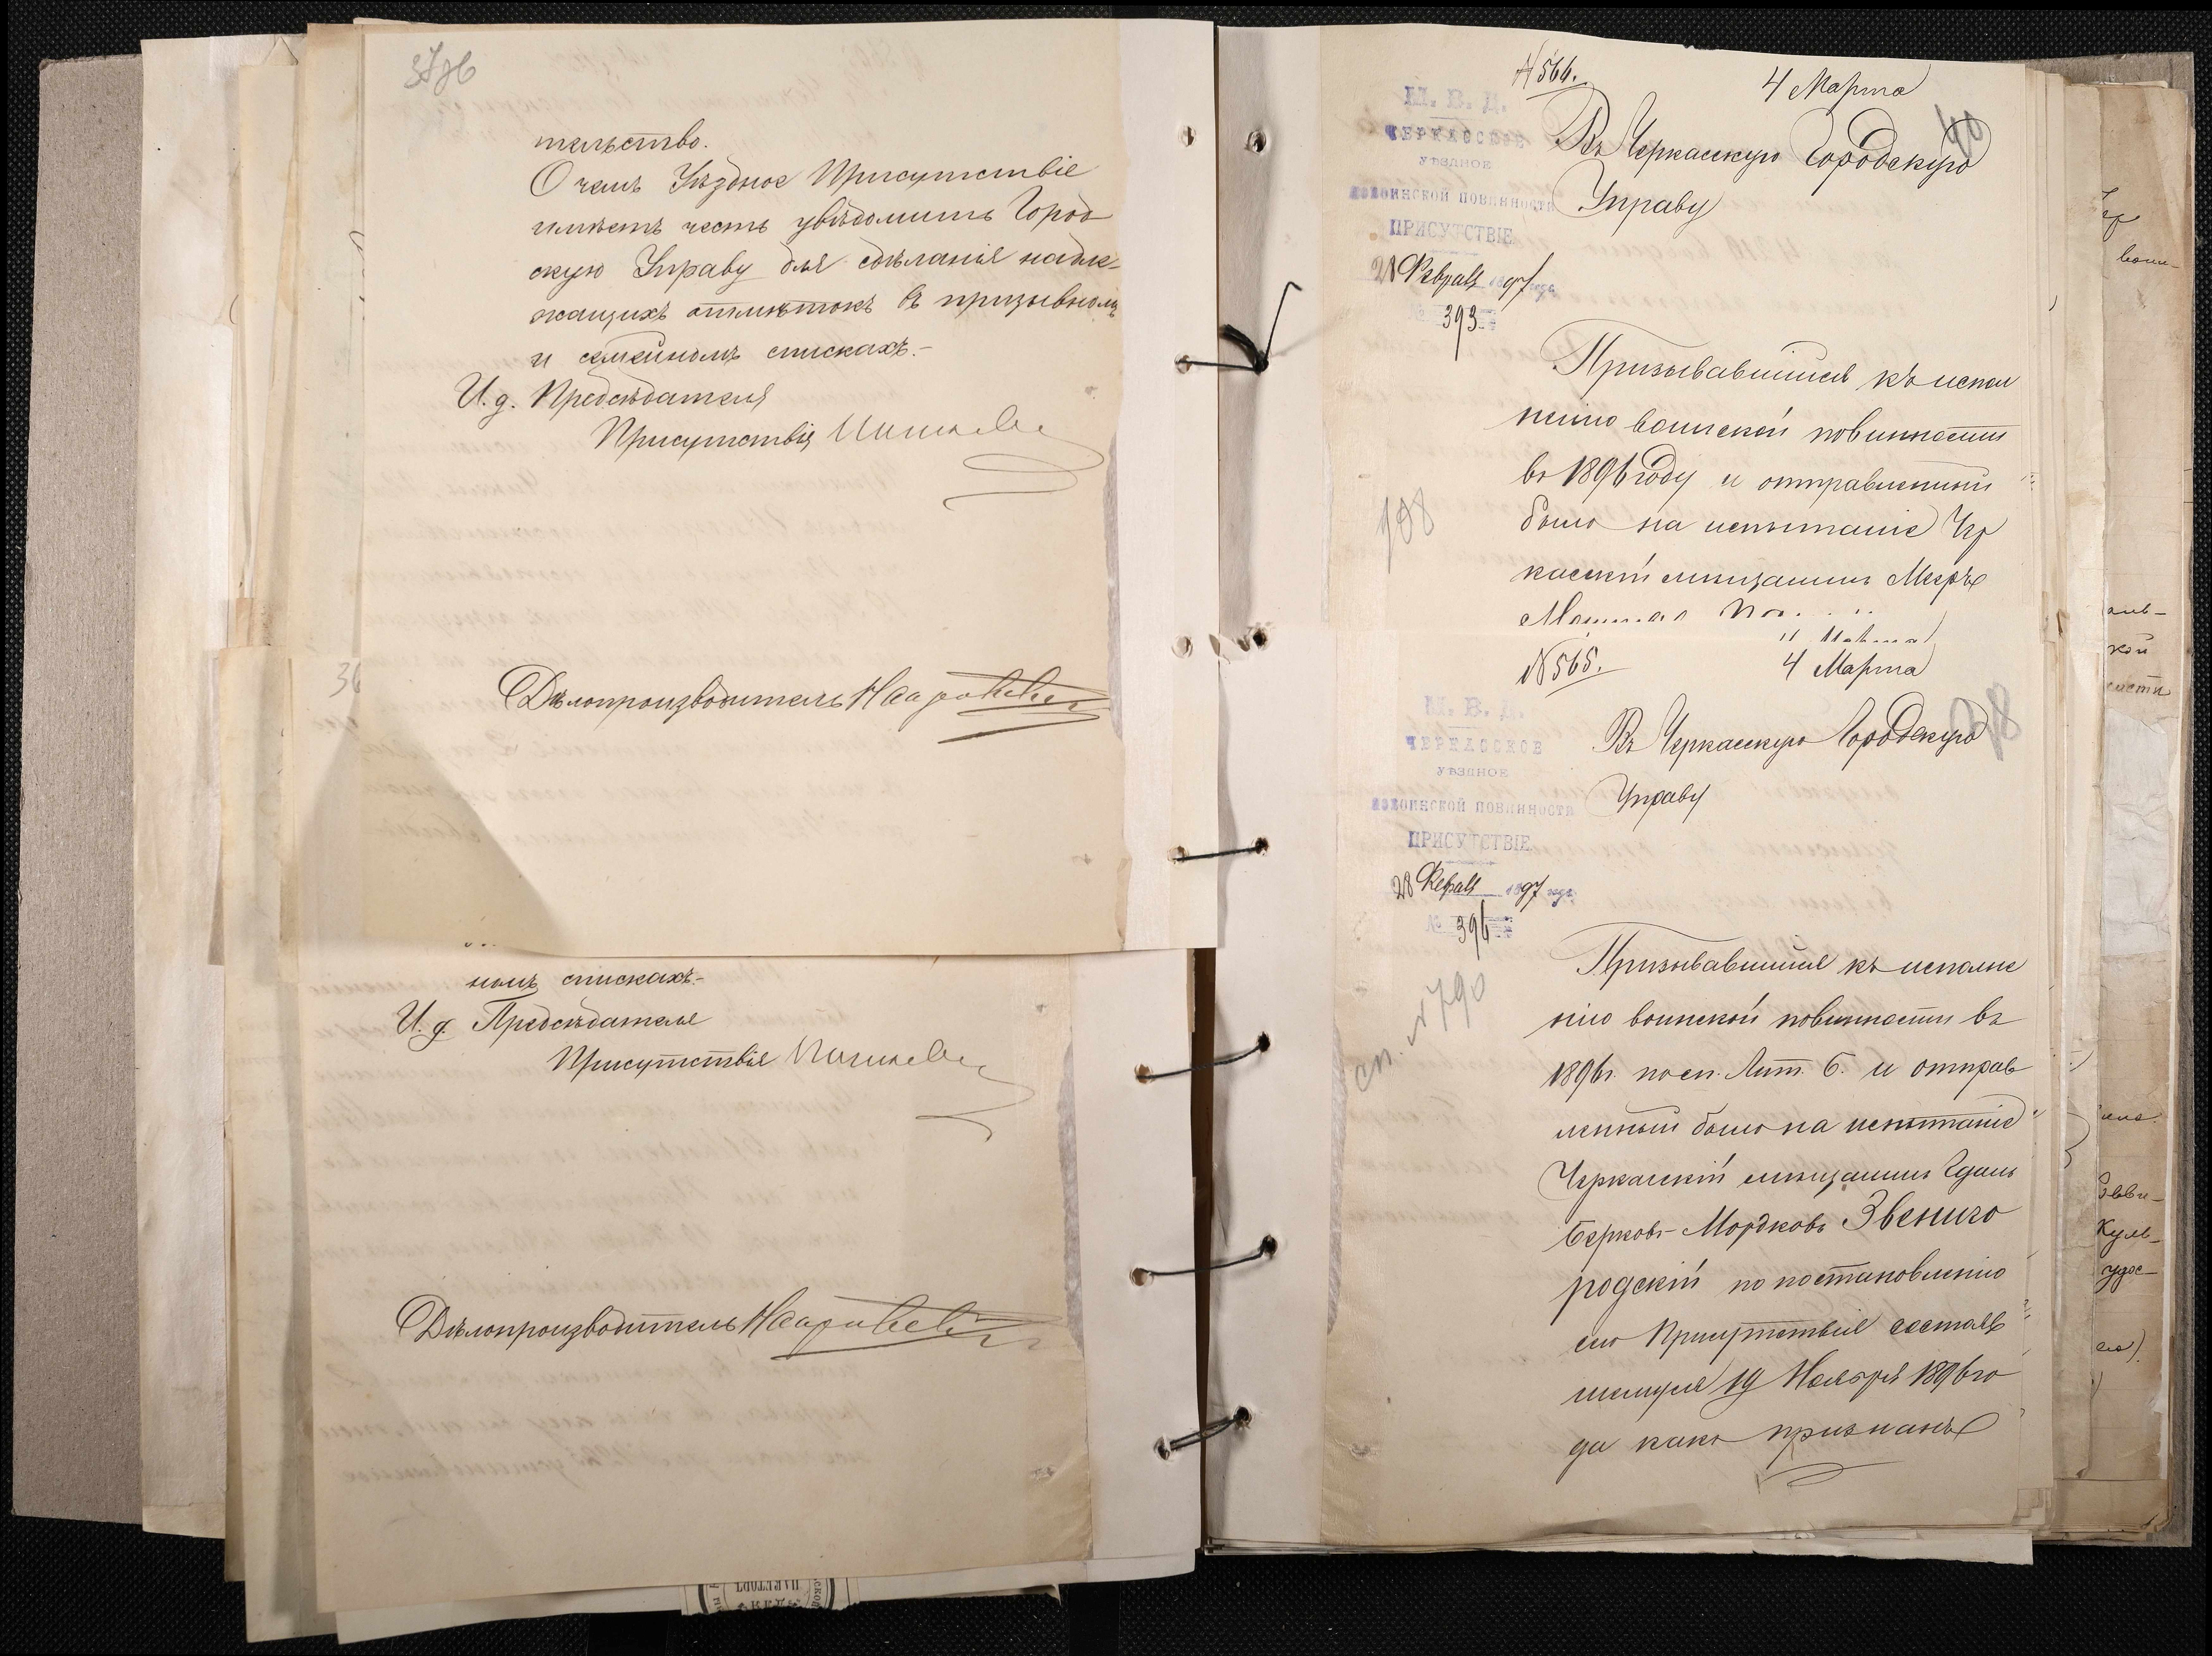 тельство.
О чемъ Уѣздное Присутствіе
имѣетъ честь увѣдомить Город
скую Управу для сдѣланія надле-
жащихъ отмѣтокъ въ призывномъ
и семейномъ спискахъ.-
И. д. Предсѣдателя
Присутствія
Дѣлопроизводитель
номъ спискахъ.-
И. д. Предсѣдателя
Присутствія
Дѣлопроизводитель
№ 566.
4 Марта
40
М. В. Д.
ЧЕРКАССКОЕ
УѢЗДНОЕ
ПО ВОИНСКОЙ ПОВИННОСТИ
ПРИСУТСТВІЕ
28 Февраля 1897 года
№ 393
Въ Черкасскую Городскую
Управу
Призывавшійся къ испол
ненію воинской повинности
въ 1896 году и отправленный
было на испытаніе Чер
касскій мѣщанинъ Мееръ
108
№ 565.
4 Марта
М. В. Д.
ЧЕРКАССКОЕ
УѢЗДНОЕ
ПО ВОИНСКОЙ ПОВИННОСТИ
ПРИСУТСТВІЕ
28 Февраля 1897 года
№ 396
Въ Черкасскую Городскую
Управу
сп. № 790
Призывавшійся къ исполне
нію воинской повинности въ
1896 г. по сп. Лит. Б. и отправ
ленный было на испытаніе
Черкасскій мѣщанинъ Гдаль
Берковъ-Мордковъ Звениго
родскій по постановленію
сего Присутствія состояв
шемуся 19 Ноября 1896 го
да какъ признанъ